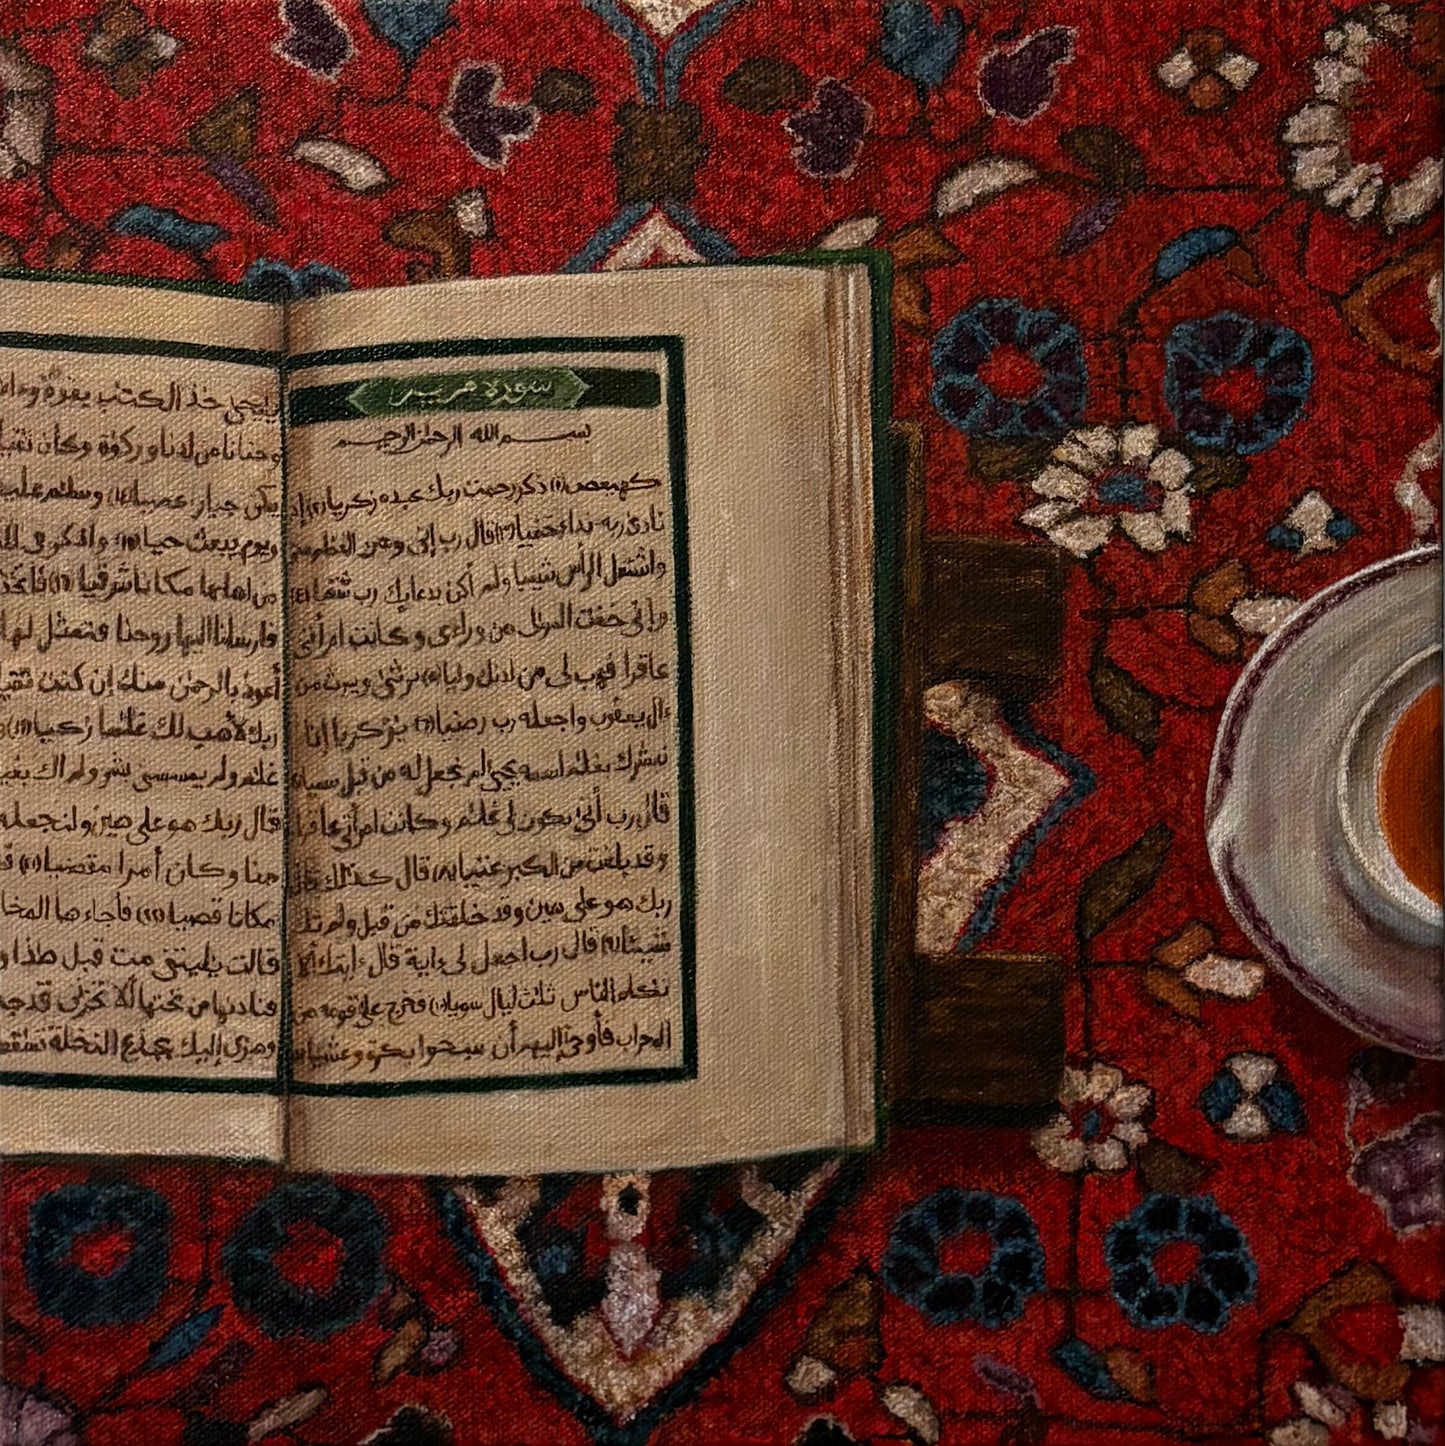 سورة مريم
بسم الله الرحمن الرحيم
كهيعص (١) ذكر رحمت ربك عبده زكريا (٢) إذ
نادى ربه نداء خفيا (٣) قال رب إنى وهن العظم من
واشتعل الرأس شيبا ولم أكن بدعائك رب شقيا (٤)
وإنى خفت المولى من وراءى وكانت امرأتى
عاقرا فهب لى من لدنك وليا (٥) يرثنى ويرث من
ءال يعقوب واجعله رب رضيا (٦) يزكريا إنا
نبشرك بغلم اسمه يحيى لم نجعل له من قبل سميا
قال رب أنى يكون لى غلم وكانت امرأتى عاقرا
وقد بلغت من الكبر عتيا (٨) قال كذلك قال
ربك هو على هين وقد خلقتك من قبل ولم تك
شيئا (٩) قال رب اجعل لى ءاية قال ءايتك ألا
تكلم الناس ثلث ليال سويا (١٠) فخرج على قومه من
المحراب فأوحى إليهم أن سبحوا بكرة وعشيا
ييحيى خذ الكتب بقوة
وحنانا من لدنا وزكوة وكان تقيا
يكن جبارا عصيا (١٤) وسلم عليه
ويوم يبعث حيا (١٥) واذكر فى
من أهلها مكانا شرقيا (١٦) فاتخذ
فأرسلنا إليها روحنا فتمثل لها
أعوذ بالرحمن منك إن كنت تقيا
ربك لأهب لك غلما زكيا (١٩)
غلم ولم يمسسنى بشر ولم أك بغيا
قال ربك هو على هين ولنجعله
منا وكان أمرا مقضيا (٢١)
مكانا قصيا (٢٢) فأجاءها المخا
قالت يليتنى مت قبل هذا و
فنادىها من تحتها ألا تحزنى قد جع
وهزى إليك بجذع النخلة تسقط